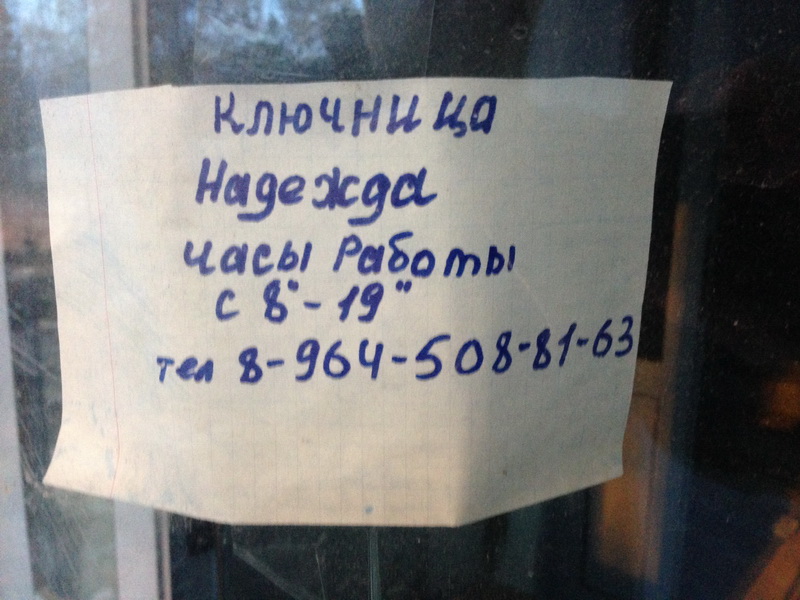 Ключница
Надежда
Часы Работы
с 8°°- 19°°
тел 8-964-508-81-63